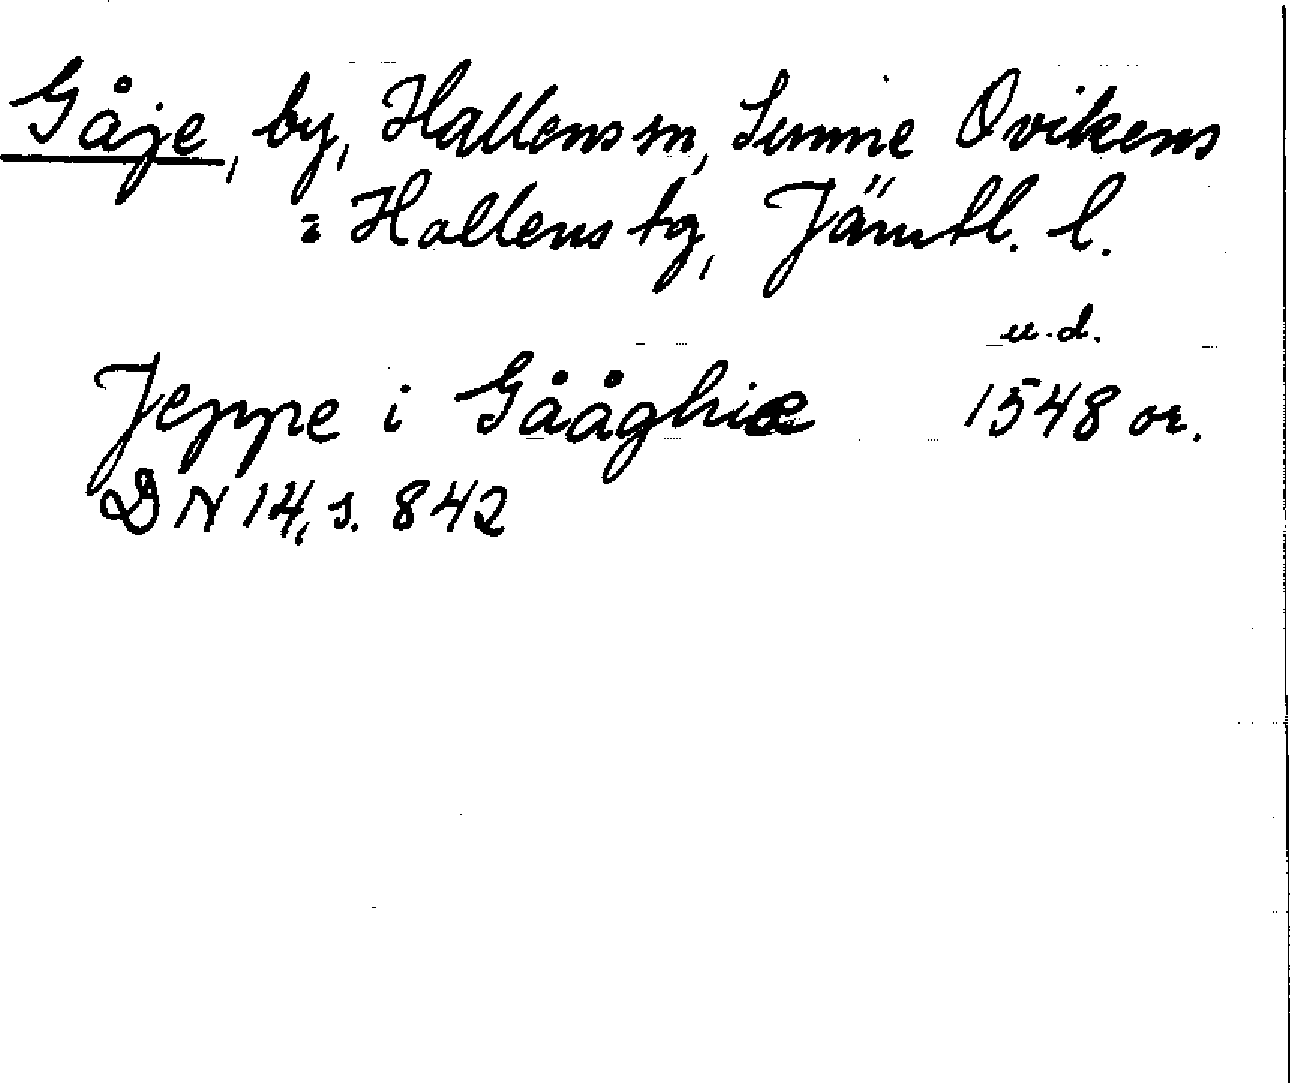 Gåje, by, Hallens sn, Sunne Ovikens
= Hallens tg, Jämtl. l.
u.d.
Jeppe i Gååghiæ 1548 or.
DN 14, s. 842